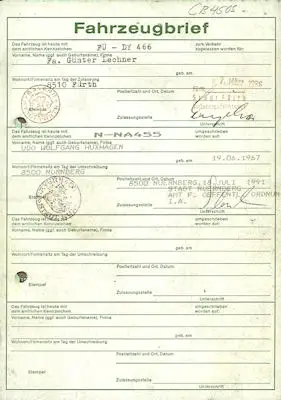 CB450S
Fahrzeugbrief
Das Fahrzeug ist heute mit dem amtlichen Kennzeichen FÜ - DY 466 zum Verkehr zugelassen worden für:
Vorname, Name (ggf. auch Geburtsname), Firma
Fa. Günter Lechner
geb. am:
Wohnort/Firmensitz am Tag der Zulassung
8510 Fürth
Postleitzahl und Ort, Datum
Stempel
Zulassungsstelle
Unterschrift
Das Fahrzeug ist heute mit dem amtlichen Kennzeichen N-NA455 umgeschrieben worden auf:
Vorname, Name (ggf. auch Geburtsname), Firma
UDO WOLFGANG HUXHAGEN
geb. am: 19.06.1967
Wohnort/Firmensitz am Tag der Umschreibung
8500 NÜRNBERG
Postleitzahl und Ort, Datum
8500 NUERNBERG, 18 JULI 1991
STADT NUERNBERG
AMT F. OEFFENTL. ORDNUNG
I.A.
Stempel
Zulassungsstelle
Unterschrift
Das Fahrzeug ist heute mit dem amtlichen Kennzeichen umgeschrieben worden auf:
Vorname, Name (ggf. auch Geburtsname), Firma
geb. am:
Wohnort/Firmensitz am Tag der Umschreibung
Postleitzahl und Ort, Datum
Stempel
Zulassungsstelle
Unterschrift
Das Fahrzeug ist heute mit dem amtlichen Kennzeichen umgeschrieben worden auf:
Vorname, Name (ggf. auch Geburtsname), Firma
geb. am:
Wohnort/Firmensitz am Tag der Umschreibung
Postleitzahl und Ort, Datum
Stempel
Zulassungsstelle
Unterschrift